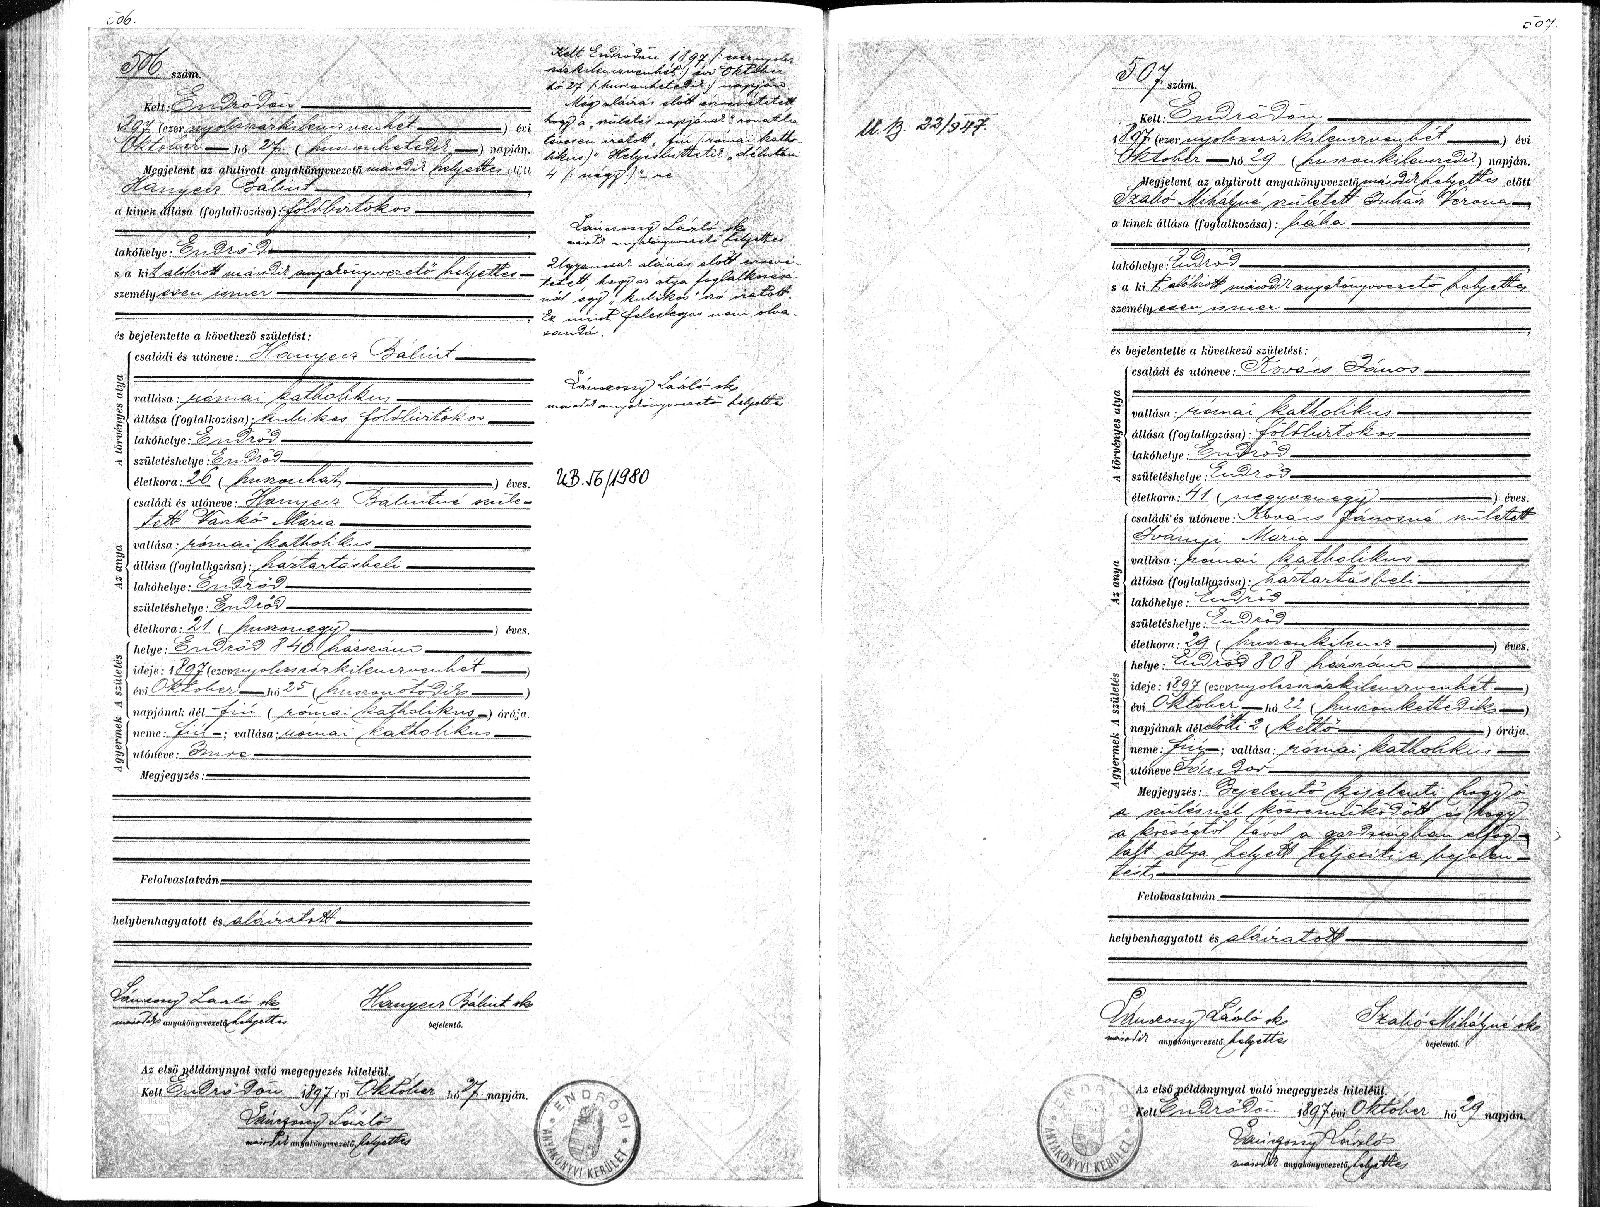 506.
506 szám.
Kelt: Endrődön
897 (ezer nyolcszázkilencvenhét) évi
Október hó 27. (huszonhetedik) napján.
Megjelent az alulirott anyakönyvvezető második helyettes előtt
Hanyecz Bálint
a kinek állása (foglalkozása): földbirtokos
lakóhelye: Endrőd
s a kit alólirott második anyakönyvvezető helyettes
személyesen ismer
és bejelentette a következő születést:
A törvényes atya
családi és utóneve: Hanyecz Bálint
vallása: római katholikus
állása (foglalkozása): kubikos földbirtokos
lakóhelye: Endrőd
születéshelye: Endrőd
életkora: 26 (huszonhat) éves.
Az anya
családi és utóneve: Hanyecz Bálintné szüle-
tett Vaskó Mária
vallása: római katholikus
állása (foglalkozása): háztartásbeli
lakóhelye: Endrőd
születéshelye: Endrőd
életkora: 21 (huszonegy) éves.
A születés
helye: Endrőd 840 házszám
ideje: 1897 (ezer nyolcszázkilencvenhét)
évi Október hó 25 (huszonötödik)
napjának dél fiú (római katholikus) órája.
A gyermek
neme: fiú; vallása: római katholikus
utóneve: Imre
Megjegyzés:
Felolvastatván
helybenhagyatott és aláiratott
Lánczony László sk
második anyakönyvvezető helyettes
Hanyecz Bálint sk
bejelentő.
Az első példánynyal való megegyezés hiteléül.
Kelt Endrődön 1897 évi Október hó 27 napján.
Lánczony László
második anyakönyvvezető helyettes
ENDRŐDI ANYAKÖNYVI KERÜLET
Kelt Endrődön 1897 (: ezernyolc
százkilencvenhét) évi Október
hó 27 (huszonhetedik) napján
Még aláírás előtt észrevétetett
hogy a „születés napjának" rovatba
tévesen íratott „fiú (római katho-
likus)" Helyesbittetik „délután
4 (: négy)"-re
Lánczony László sk
második anyakönyvvezető helyettes
Ugyancsak aláírás előtt észrevé-
tetett, hogy az atya foglalkozásá-
nál egy „kubikos" szó íratott.
Ez mint felesleges nem olva-
sandó.
Lánczony László sk
második anyakönyvvezető helyettes
UB. 56/1980
507.
U.B. 22/947.
507 szám.
Kelt: Endrődön
1897 (ezer nyolcszázkilencvenhét) évi
Október hó 29 (huszonkilencedik) napján.
Megjelent az alulirott anyakönyvvezető második helyettes előtt
Szabó Mihályné született Juhász Verona
a kinek állása (foglalkozása): bába
lakóhelye: Endrőd
s a kit alólirott második anyakönyvvezető helyettes
személyesen ismer
és bejelentette a következő születést:
A törvényes atya
családi és utóneve: Kovács János
vallása: római katholikus
állása (foglalkozása): földbirtokos
lakóhelye: Endrőd
születéshelye: Endrőd
életkora: 41 (negyvenegy) éves.
Az anya
családi és utóneve: Kovács Jánosné született
Iványi Mária
vallása: római katholikus
állása (foglalkozása): háztartásbeli
lakóhelye: Endrőd
születéshelye: Endrőd
életkora: 29 (huszonkilenc) éves.
A születés
helye: Endrőd 808 házszám
ideje: 1897 (ezer nyolcszázkilencvenhét)
évi Október hó 22 (huszonkettedik)
napjának délelőtti 2 (kettő) órája.
A gyermek
neme: fiú; vallása: római katholikus
utóneve Sándor
Megjegyzés: Bejelentő kijelenti hogy ő
a szülésnél közreműködött és hogy
a községtől távol a gazdaságban elfog-
lalt atya helyett teljesiti a bejelen-
tést.
Felolvastatván
helybenhagyatott és aláiratott
Lánczony László sk
második anyakönyvvezető helyettes
Szabó Mihályné sk
bejelentő.
Az első példánynyal való megegyezés hiteléül.
Kelt Endrődön 1897 évi Október hó 29 napján.
Lánczony László
második anyakönyvvezető helyettes
ENDRŐDI ANYAKÖNYVI KERÜLET